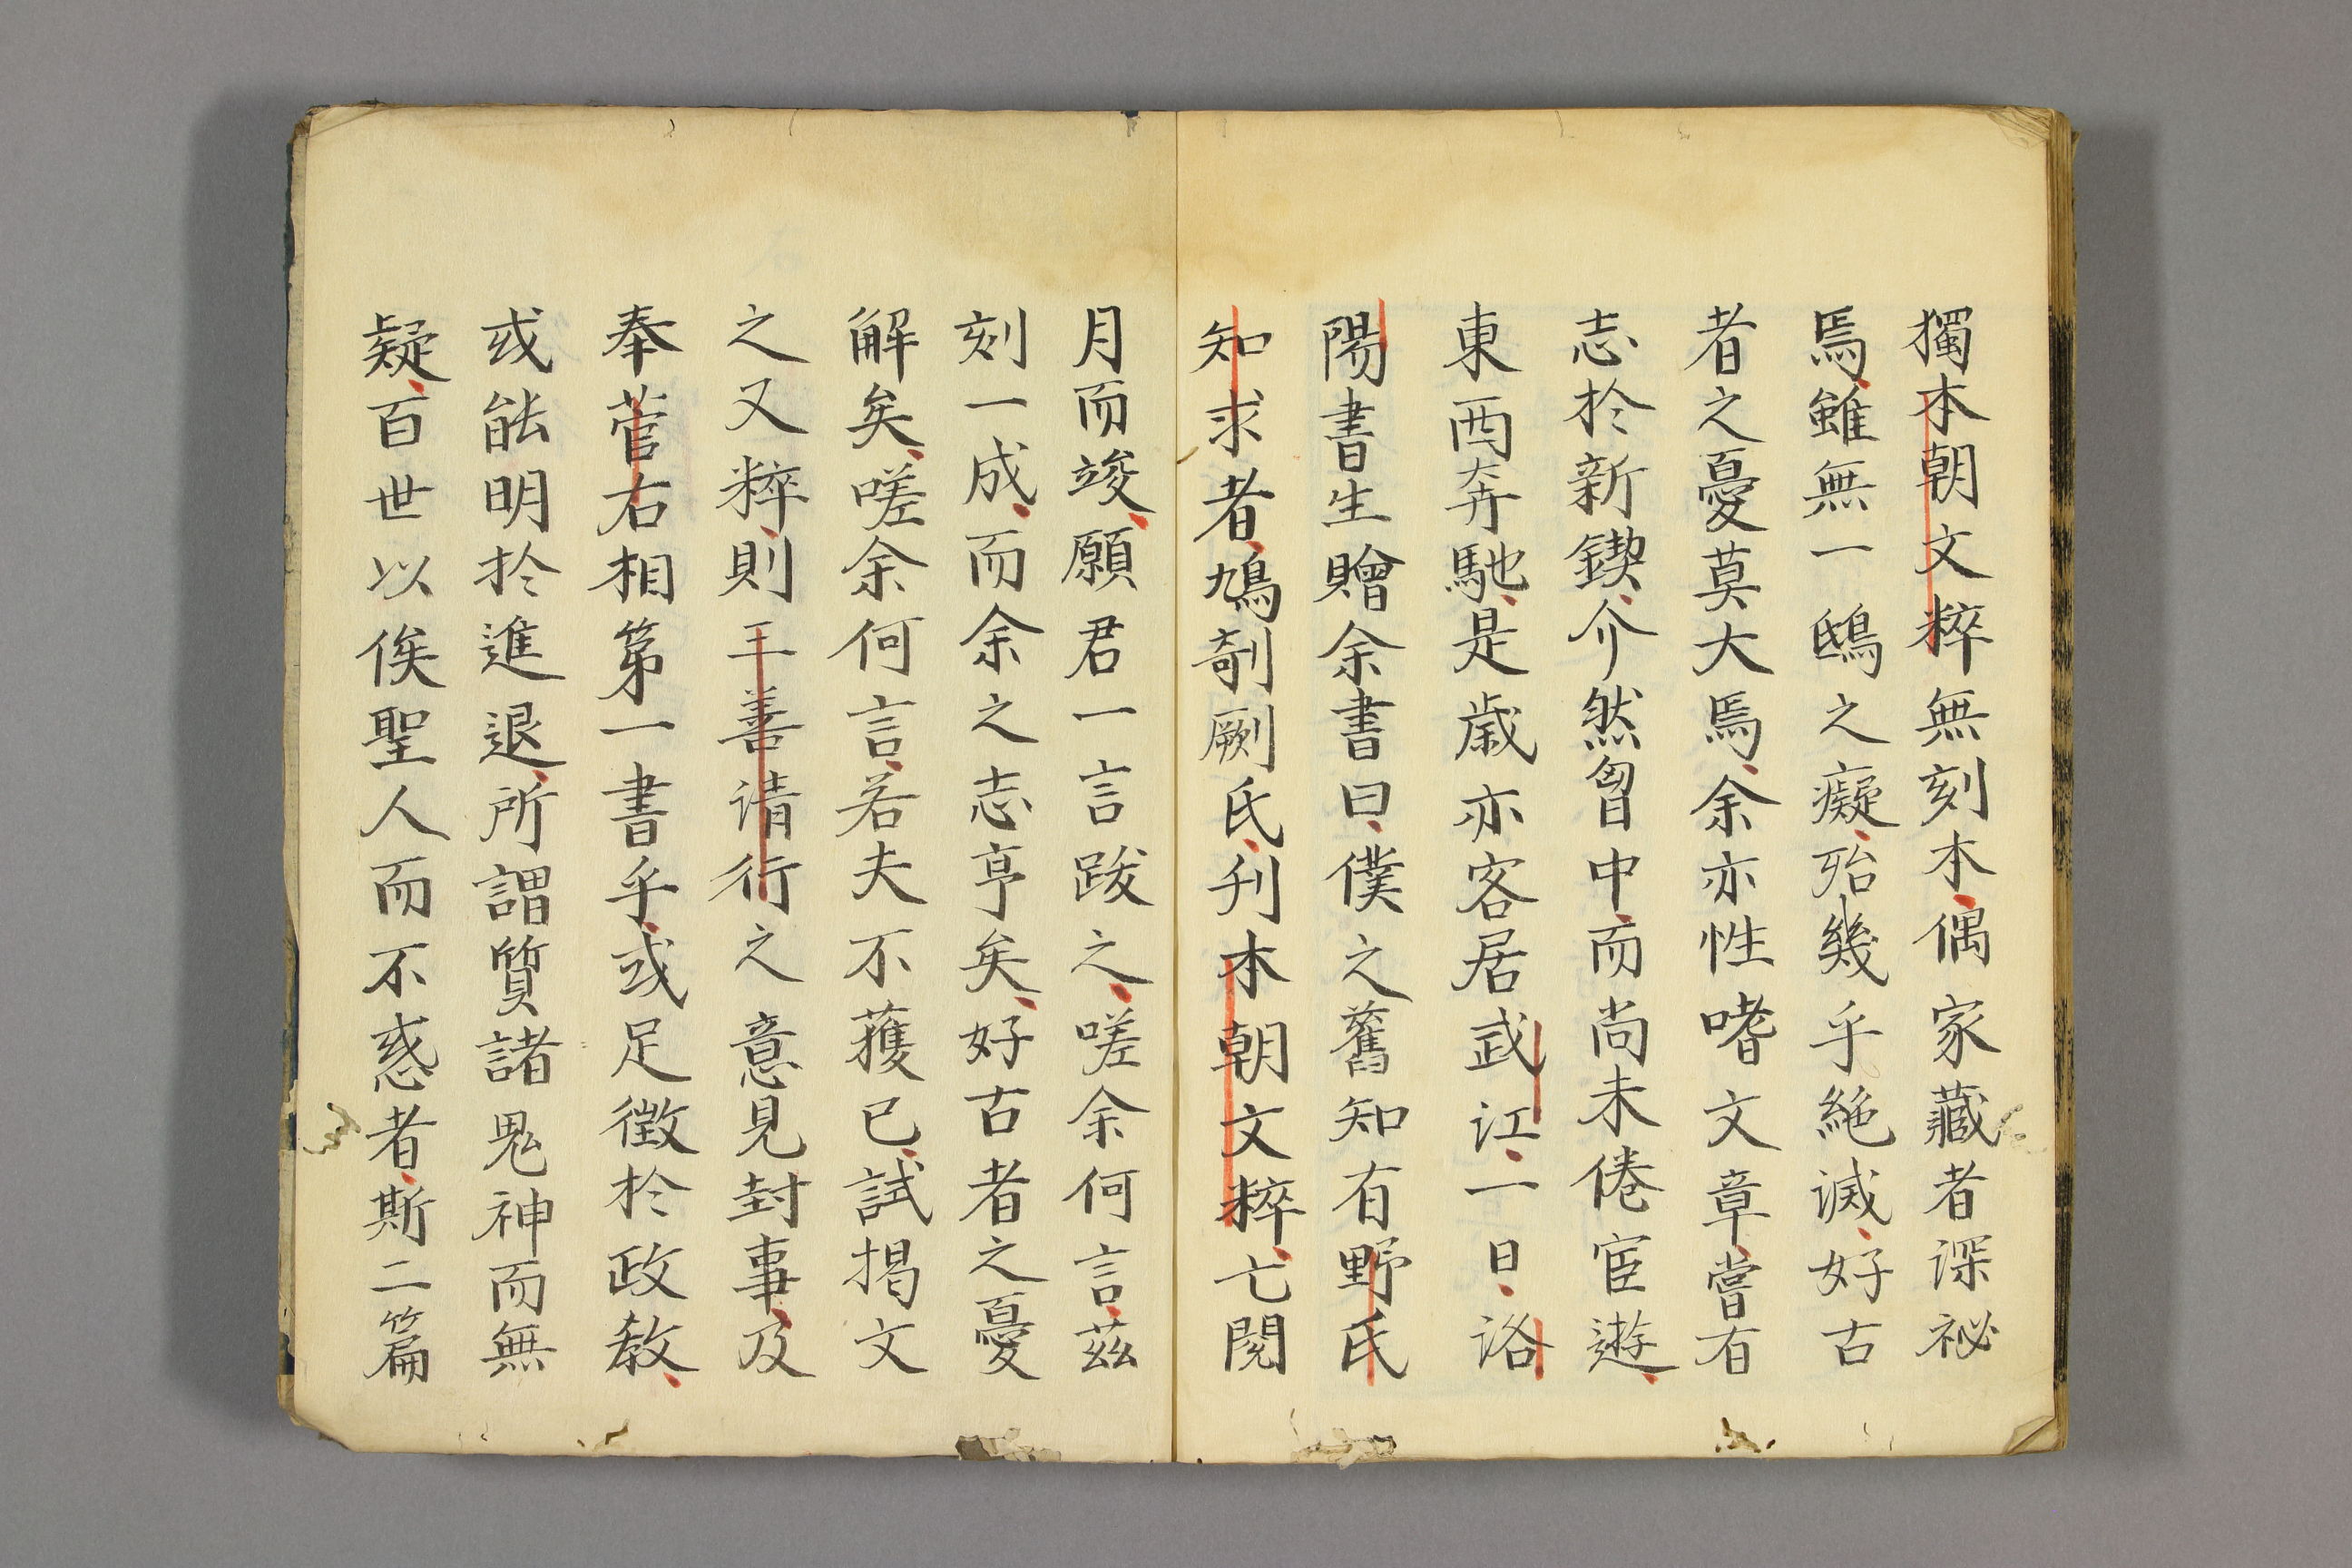 獨本朝文粹無刻本偶家藏者深祕
焉雖無一鴟之癡殆幾乎絶滅好古
者之憂莫大焉余亦性嗜文章嘗有
志於新鍥介然匈中而尚未倦宦遊
東西奔馳是歳亦客居武江一日洛
陽書生贈余書曰僕之舊知有野氏
知求者鳩剞劂氏刊本朝文粹亡閲
月而竣願君一言跋之嗟余何言茲
刻一成而余之志亨矣好古者之憂
解矣嗟余何言若夫不獲已試掲文
之又粹則三善清行之意見封事及
奉菅右相第一書乎或足徴於政教
或能明於進退所謂質諸鬼神而無
疑百世以俟聖人而不惑者斯二篇